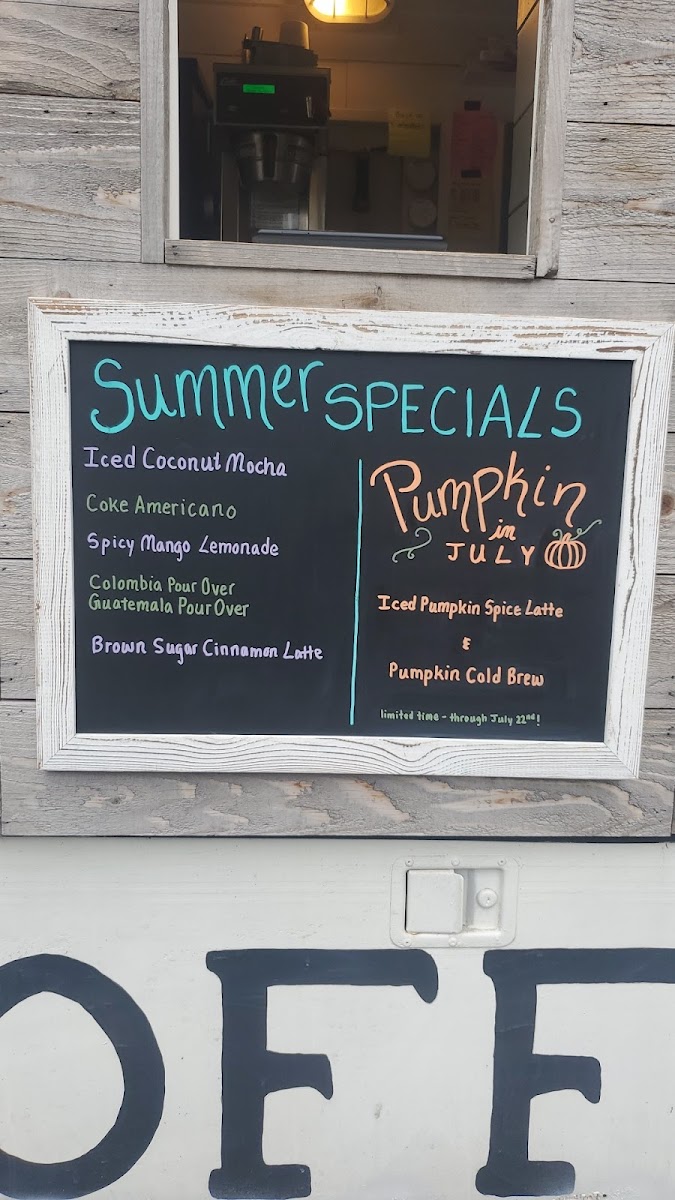 Summer SPECIALS
Iced Coconut Mocha
Coke Americano
Spicy Mango Lemonade
Colombia Pour Over
Guatemala Pour Over
Brown Sugar Cinnamon Latte
Pumpkin
in
JULY
Iced Pumpkin Spice Latte
&
Pumpkin Cold Brew
limited time - through July 22nd!
OFF